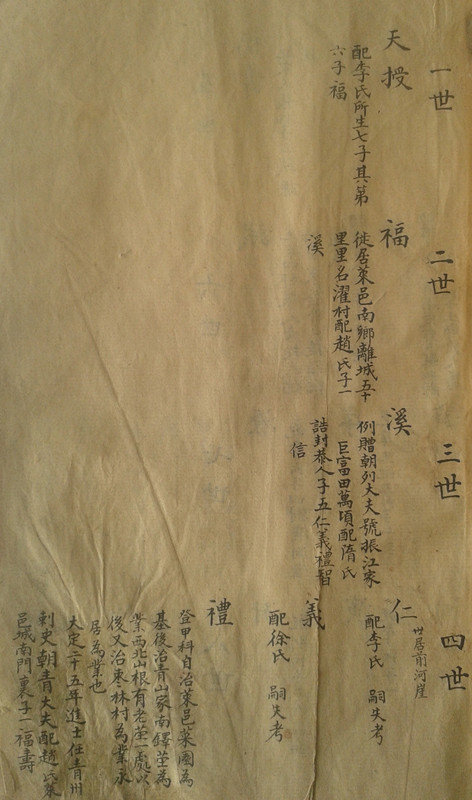 一世
天授
配李氏所生七子其第
六子福
二世
福
徙居萊邑南鄉離城五十
里里名濯村配趙氏子一
溪
三世
溪
例贈朝列大夫號振江家
巨富田萬頃配隋氏
誥封恭人子五仁義禮智
信
四世
仁
世居前河崖
配李氏 嗣失考
義
配徐氏 嗣失考
禮
登甲科自治萊邑菜園為
基後治青山家南鐸塋為
業西北山根有老塋一處以
後又治棗林村為業永
居為業也
大定二十五年進士任青州
刺史朝青大夫配趙氏萊
邑城南門裏子一福壽